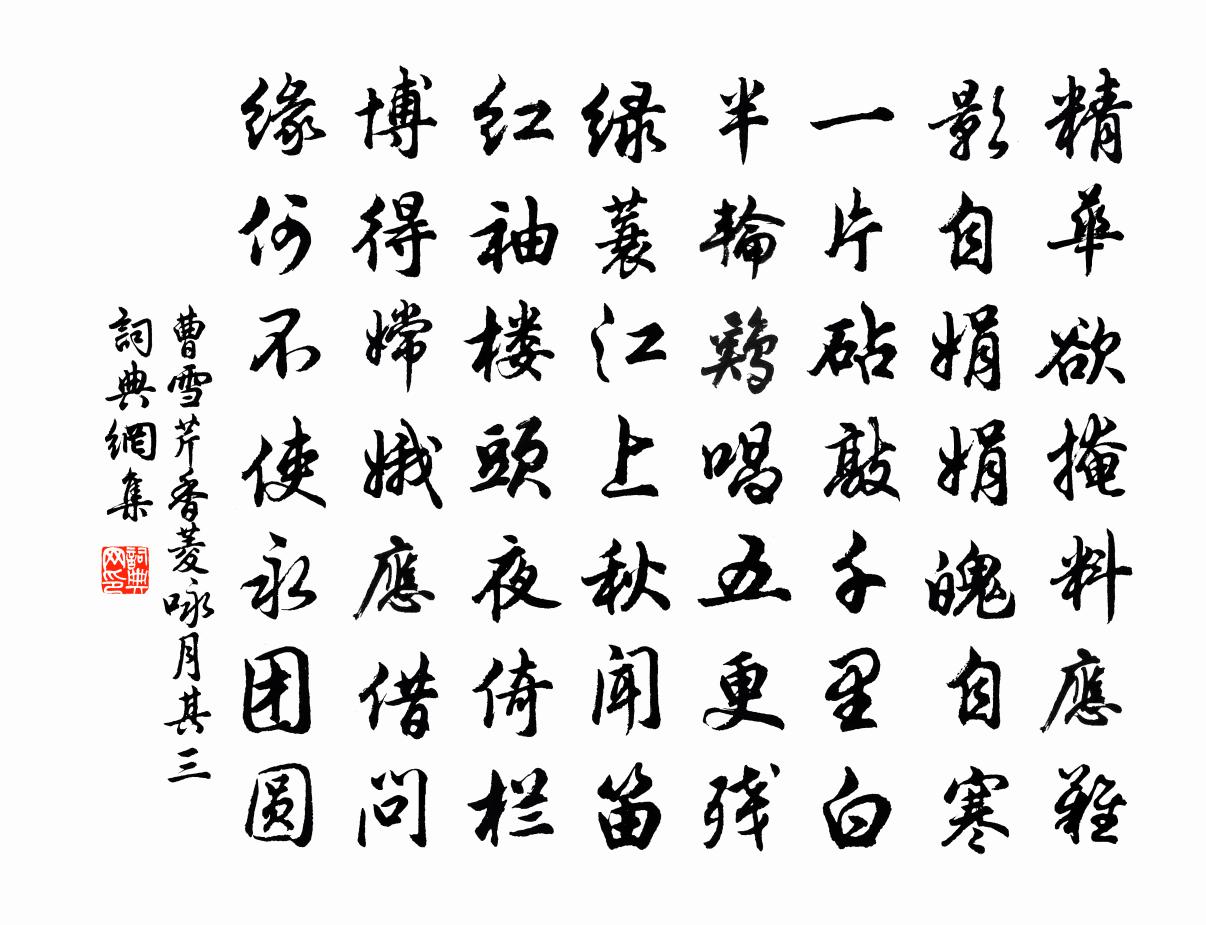 精華欲掩料應難
影自娟娟魄自寒
一片砧敲千里白
半輪鷄唱五更残
緑蓑江上秋聞笛
红袖楼頭夜倚栏
博得嫦娥應借问
缘何不使永团圆
曹雪芹香菱咏月其三
詞典網集
詞典网印